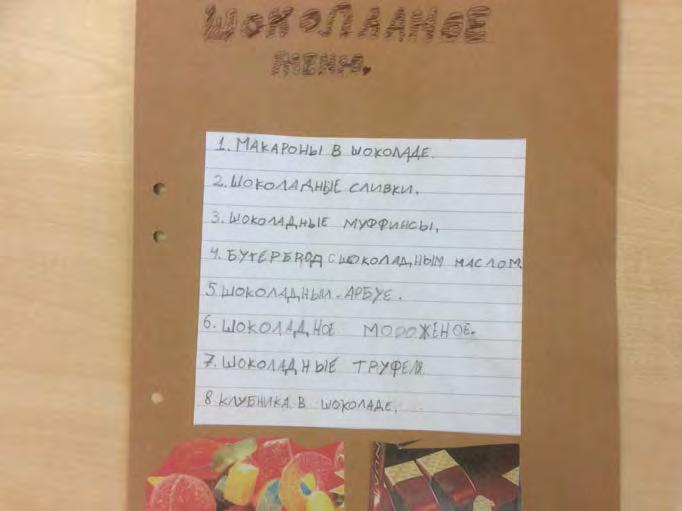 ШОКОЛАДНОЕ
МЕНЮ.
1. МАКАРОНЫ В ШОКОЛАДЕ.
2. ШОКОЛАДНЫЕ СЛИВКИ.
3. ШОКОЛАДНЫЕ МУФФИНСЫ.
4. БУТЕРБРОД С ШОКОЛАДНЫМ МАСЛОМ.
5. ШОКОЛАДНЫЙ АРБУЗ.
6. ШОКОЛАДНОЕ МОРОЖЕНОЕ.
7. ШОКОЛАДНЫЕ ТРУФЕЛЯ
8. КЛУБНИКА В ШОКОЛАДЕ.